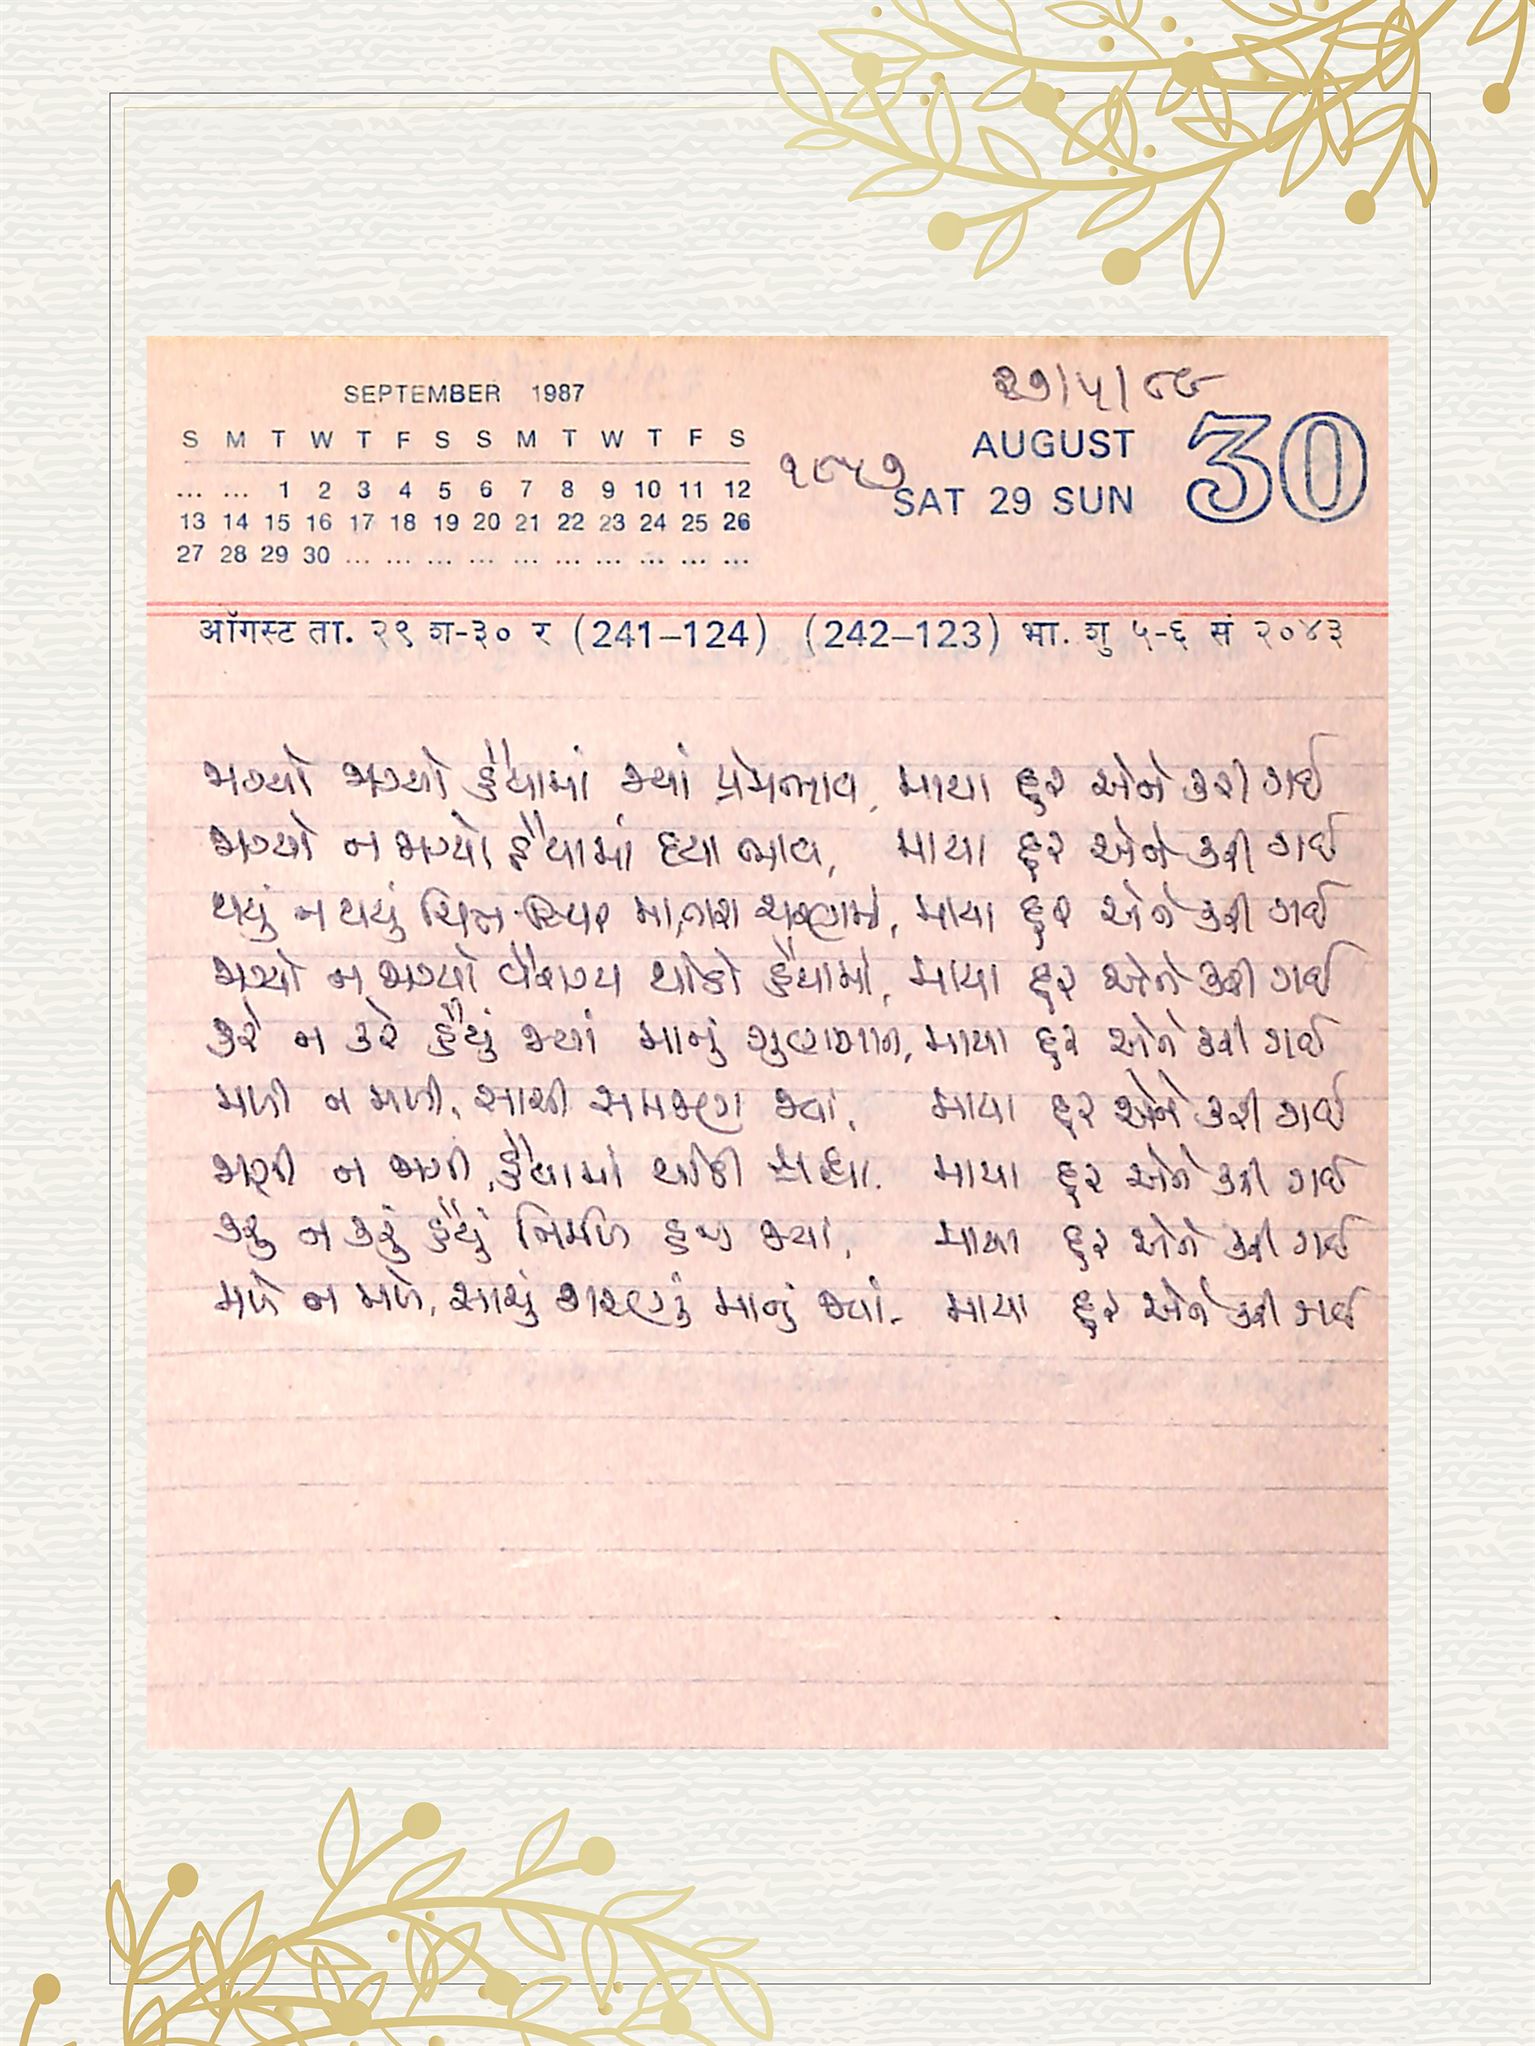 SEPTEMBER 1987
S M T W T F S S M T W T F S
... ... 1 2 3 4 5 6 7 8 9 10 11 12
13 14 15 16 17 18 19 20 21 22 23 24 25 26
27 28 29 30 ... ... ... ... ... ... ... ... ... ...
૨૭/૫/૮૮
AUGUST 30
SAT 29 SUN
ऑगस्ट ता. २९ श-३० र (241–124) (242–123) भा. शु ५-६ सं २०४३
ભર્યો ભર્યો હૈયામાં જ્યાં પ્રેમભાવ, માયા દુર એને કરી ગઈ
ભર્યો ન ભર્યો હૈયામાં દયા ભાવ, માયા દુર એને કરી ગઈ
થયું ન થયું ચિત્ત સ્થિર મા, તારા ચરણમાં, માયા દુર એને કરી ગઈ
ભર્યો ન ભર્યો વૈરાગ્ય થોડો હૈયામાં, માયા દુર એને કરી ગઈ
કરે ન કરે હૈયું જ્યાં માનું ગુણગાન, માયા દુર એને કરી ગઈ
મળી ન મળી, સાચી સમજણ જ્યાં, માયા દુર એને કરી ગઈ
ભરી ન ભરી, હૈયામાં થોડી શ્રદ્ધા. માયા દુર એને કરી ગઈ
કર્યું ન કર્યું હૈયું નિર્મળ હજુ જ્યાં, માયા દુર એને કરી ગઈ
મળે ન મળે, સાચું શરણું માનું જ્યાં. માયા દુર એને કરી ગઈ